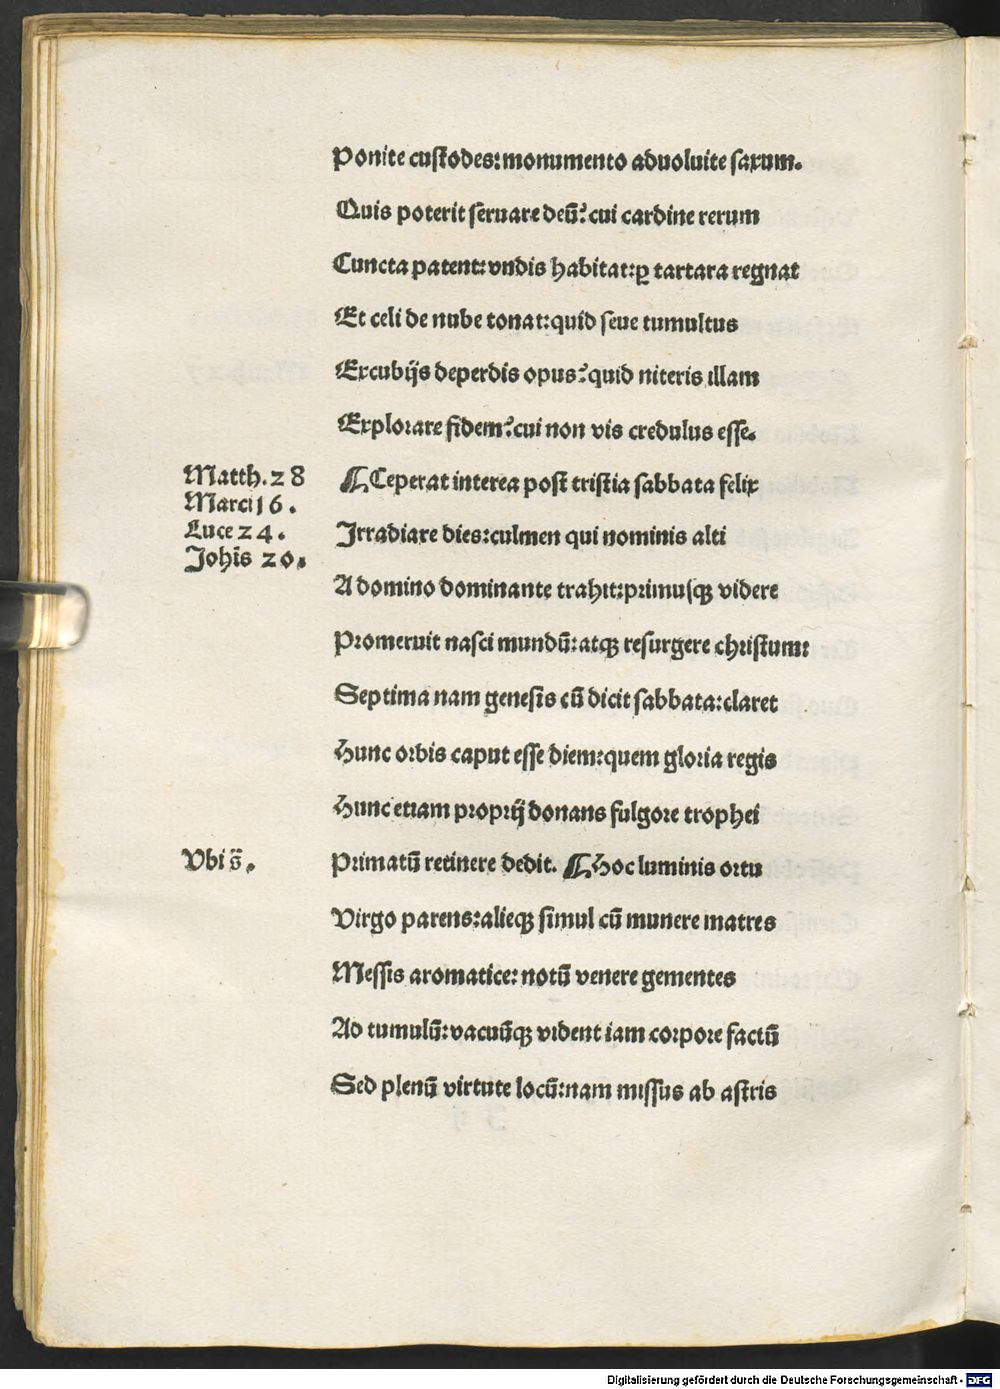 Ponite cuſtodes: monumento aduoluite ſaxum.
Quis poterit ſeruare deū? cui cardine rerum
Cuncta patent: vndis habitat: ꝑ tartara regnat
Et celi de nube tonat: quid ſeue tumultus
Excubijs deperdis opus? quid niteris illam
Explorare fidem? cui non vis credulus eſſe.
Matth. 28
Marci 16.
Luce 24.
Johīs 20.
¶ Ceperat interea poſt triſtia ſabbata felix
Irradiare dies: culmen qui nominis alti
A domino dominante trahit: primuſqꝫ videre
Promeruit naſci mundū: atqꝫ reſurgere chriſtum:
Septima nam geneſis cū dicit ſabbata: claret
Hunc orbis caput eſſe diem: quem gloria regis
Hunc etiam proprij donans fulgore trophei
Vbi s̄.
Primatū retinere dedit. ¶ Hoc luminis ortu
Virgo parens: alieqꝫ ſimul cū munere matres
Meſſis aromatice: notū venere gementes
Ad tumulū: vacuūqꝫ vident iam corpore factū
Sed plenū virtute locū: nam miſſus ab aſtris
Digitalisierung gefördert durch die Deutsche Forschungsgemeinschaft - DFG